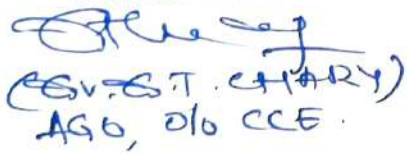 (GV.G.T. CHARY)
AGO, O/o CCE.